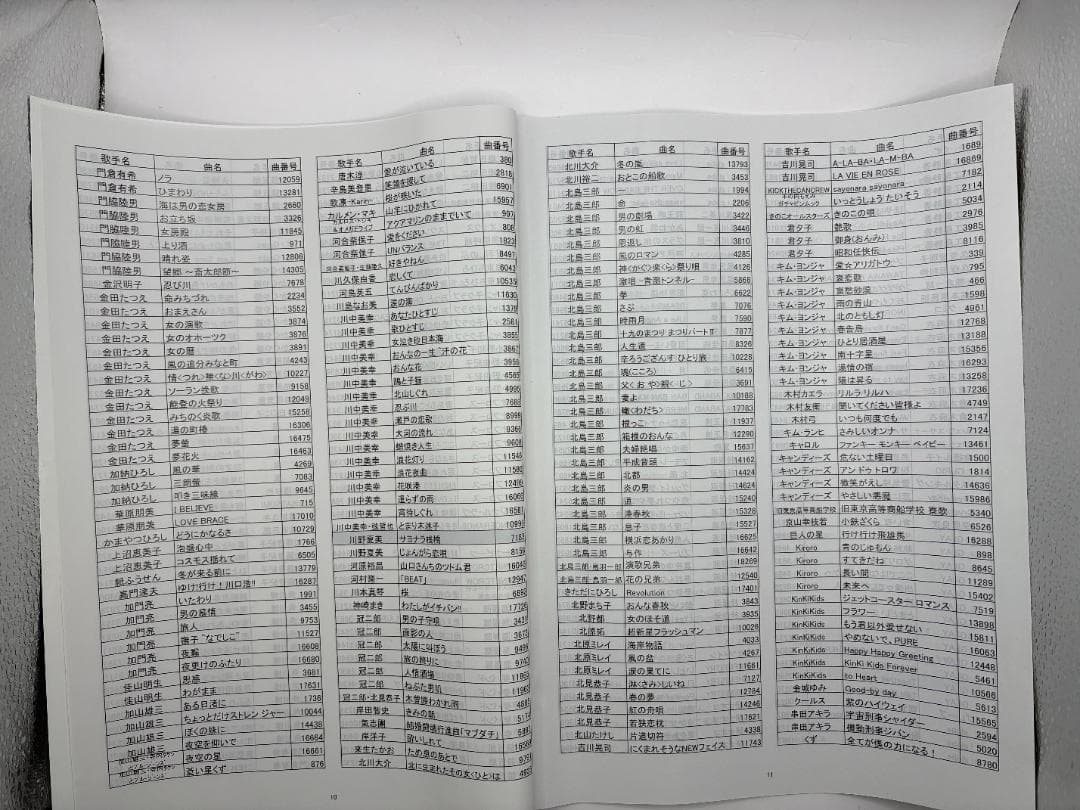 歌手名 曲名 曲番号
門倉有希 ノラ 12059
門倉有希 ひまわり 13281
門脇陸男 海は男の恋女房 2660
門脇陸男 お立ち坂 3326
門脇陸男 女房殿 11845
門脇陸男 上り酒 971
門脇陸男 晴れ姿 12806
門脇陸男 望郷～斎太郎節～ 14305
金沢明子 忍び川 7678
金田たつえ 命みちづれ 2234
金田たつえ おまえさん 3552
金田たつえ 女の演歌 3874
金田たつえ 女のオホーツク 3876
金田たつえ 女の暦 3891
金田たつえ 風の追分みなと町 4243
金田たつえ 情<つれ>無<な>川<がわ> 10227
金田たつえ ソーラン挽歌 9158
金田たつえ 能登の火祭り 12049
金田たつえ みちのく炎歌 15258
金田たつえ 湯の町椿 16306
金田たつえ 夢螢 16475
金田たつえ 夢花火 16463
加納ひろし 風の華 4269
加納ひろし 7083
叩き三味線 9645
華原朋美 I BELIEVE 715
華原朋美 LOVE BRACE 17010
かまやつひろし どうにかなるさ 10729
上沼恵美子 泡盛心中 1766
上沼恵美子 コスモス揺れて 6505
紙ふうせん 冬が来る前に 13779
嘉門達夫 ゆけ!行け!川口浩!! 16287
加門亮 いたわり 1991
加門亮 男の慕情 3455
加門亮 旅人 9753
加門亮 撫子"なでしこ" 11527
加門亮 夜霧 16608
加門亮 夜更けのふたり 16680
佳山明生 3681
佳山明生 わがまま 17631
加山雄三 ある日渚に 1736
加山雄三 ちょっとだけストレンジャー 10044
加山雄三 ぼくの妹に 14438
加山雄三 夜空を仰いで 16664
夜空の星 16661
蒼い星くず 876
10
歌手名 曲名 曲番号
唐木淳 愛が泣いている 380
辛島美登里 笑顔を探して 2818
歌凛-Karin- 桜が咲いた 6901
カルメン・マキ 山羊にひかれて 15957
アクアマリンのままでいて 997
河合奈保子 愛をください 808
河合奈保子 UNバランス 1823
好きやねん 8497
川久保由香 恋しくて 6043
河島英五 てんびんばかり 10535
川島なお美 11630
川中美幸 あなたひとすじ 1379
川中美幸 歌ひとすじ 2561
川中美幸 女泣き砂日本海 3855
川中美幸 おんなの一生"汗の花" 3867
川中美幸 おんな花 3950
川中美幸 4565
川中美幸 北山しぐれ 4995
川中美幸 忍ぶ川 7682
川中美幸 瀬戸の恋歌 8999
川中美幸 大河の流れ 9361
川中美幸 9608
川中美幸 浪花灯り 11545
川中美幸 浪花夜曲 11580
川中美幸 花咲湊 12490
川中美幸 遣らずの雨 16060
川中美幸 16581
川中美幸・弦哲也 とまり木迷子 1099
川野夏美 サヨナラ桟橋 718
川野夏美 じょんがら恋唄 8159
河原昌 山口さんちのツトム君 16045
河村隆一 「BEAT」 12947
川本真琴 桜 6882
神崎まき わたしがイチバン!! 17726
冠二郎 男の子守唄 343
冠二郎 面影の人 367
冠二郎 太陽に叫ぼう 949
冠二郎 旅の終りに 974
冠二郎 人情酒場 1196
冠二郎 ねぶた男肌 1186
冠二郎・北見恭子 木曽路わかれ雨 485
岸田智史 きみの朝 517
気志團 結婚闘魂行進曲「マブダチ」 589
岸洋子 歌いしれて
来生たかお ため息のあとで 975
北川大介 北に生まれたその女<ひと>は
歌手名 曲名 曲番号
北川大介 冬の嵐 13793
北川裕二 おとこの船歌 3453
北島三郎 一 1994
北島三郎 命 2206
北島三郎 男の劇場 3422
北島三郎 男の虹 3446
北島三郎 恩返し 3810
北島三郎 風のロマン 4285
北島三郎 神<かぐ>楽<ら>祭り唄 4126
北島三郎 豪唱-青函トンネル- 5866
北島三郎 拳 6622
北島三郎 さぶ 7076
北島三郎 時雨月 7590
北島三郎 十九のまつり まつりパートII 7877
北島三郎 人生道 8326
北島三郎 辛ろうござんす ひとり旅 10228
北島三郎 魂<こころ> 6415
北島三郎 父<おや>親<じ> 3691
北島三郎 妻よ 10188
北島三郎 轍<わだち> 17783
北島三郎 根っこ 11937
北島三郎 箱根のおんな 12290
北島三郎 夫婦絶唱 15637
北島三郎 平成音頭 14162
北島三郎 北都 14424
北島三郎 炎の男 14624
北島三郎 道 15240
北島三郎 湊春秋 15328
北島三郎 息子 15527
北島三郎 横浜恋あかり 16625
北島三郎 与作 16642
北島三郎・鳥羽一郎 演歌兄弟 18269
北島三郎・鳥羽一郎 花の兄弟 12540
きただにひろし Revolution 17401
北野まち子 おんな春秋 3843
北野都 女のほそ道 3935
北原拓 超新星フラッシュマン 10026
北原ミレイ 海岸物語 4033
北原ミレイ 風の盆 4267
北原ミレイ 涙の果てに 11661
北見恭子 淋<さみ>しいね 7127
北見恭子 春の夢 12784
北見恭子 紅の舟唄 14246
北見恭子 若狭恋枕 17621
北山たけし 片道切符 4338
吉川晃司 にくまれそうなNEWフェイス 11743
11
歌手名 曲名 曲番号
吉川晃司 A-LA-BA・LA-M-BA 1689
吉川晃司 LA VIE EN ROSE 16869
KICKTHECANCREW sayonara sayonara 7182
ガチャピンムック いっとうしょうたいそう 2114
きのこオールスターズ きのこの唄 5034
君夕子 艶歌 2976
君夕子 御身(おんみ) 3985
君夕子 昭和任侠伝 8116
キム・ヨンジャ 愛☆アリガトウ 339
キム・ヨンジャ 哀恋歌 795
キム・ヨンジャ 哀愁砂漠 466
キム・ヨンジャ 雨の青山 1598
キム・ヨンジャ 北のともし灯 4961
キム・ヨンジャ 春告鳥 12768
キム・ヨンジャ ひとり居酒屋 13188
キム・ヨンジャ 南十字星 15355
キム・ヨンジャ 湯情の宿 16293
キム・ヨンジャ 陽は昇る 13258
木村カエラ リルラリルハ 17236
木村友衛 聞いてください皆様よ 4749
木村弓 いつも何度でも 2147
キム・ランヒ さみしいオンナ 7124
キャロル ファンキー モンキー ベイビー 13461
キャンディーズ 危ない土曜日 1500
キャンディーズ アン・ドゥ・トロワ 1814
キャンディーズ 微笑がえし 14636
キャンディーズ やさしい悪魔 15986
旧東京高等商船学校 旧東京高等商船学校 寮歌 5340
京山幸枝若 小鉄ざくら 6526
巨人の星 行け行け飛雄馬 16288
Kiroro 青のじゅもん 898
Kiroro すてきだね 8645
Kiroro 長い間 11289
Kiroro 未来へ 15402
KinKiKids ジェットコースター・ロマンス 7519
KinKiKids フラワー 13898
KinKiKids もう君以外愛せない 15811
KinKiKids やめないで、PURE 16053
KinKiKids Happy Happy Greeting 12448
KinKiKids KinKi Kids Forever 5461
KinKiKids to Heart 10566
金城ゆみ Good-by day 5613
クールス 紫のハイウェイ 15565
串田アキラ 宇宙刑事シャイダー 2594
串田アキラ 機動刑事ジバン 5020
くず 全てが僕の力になる! 8760